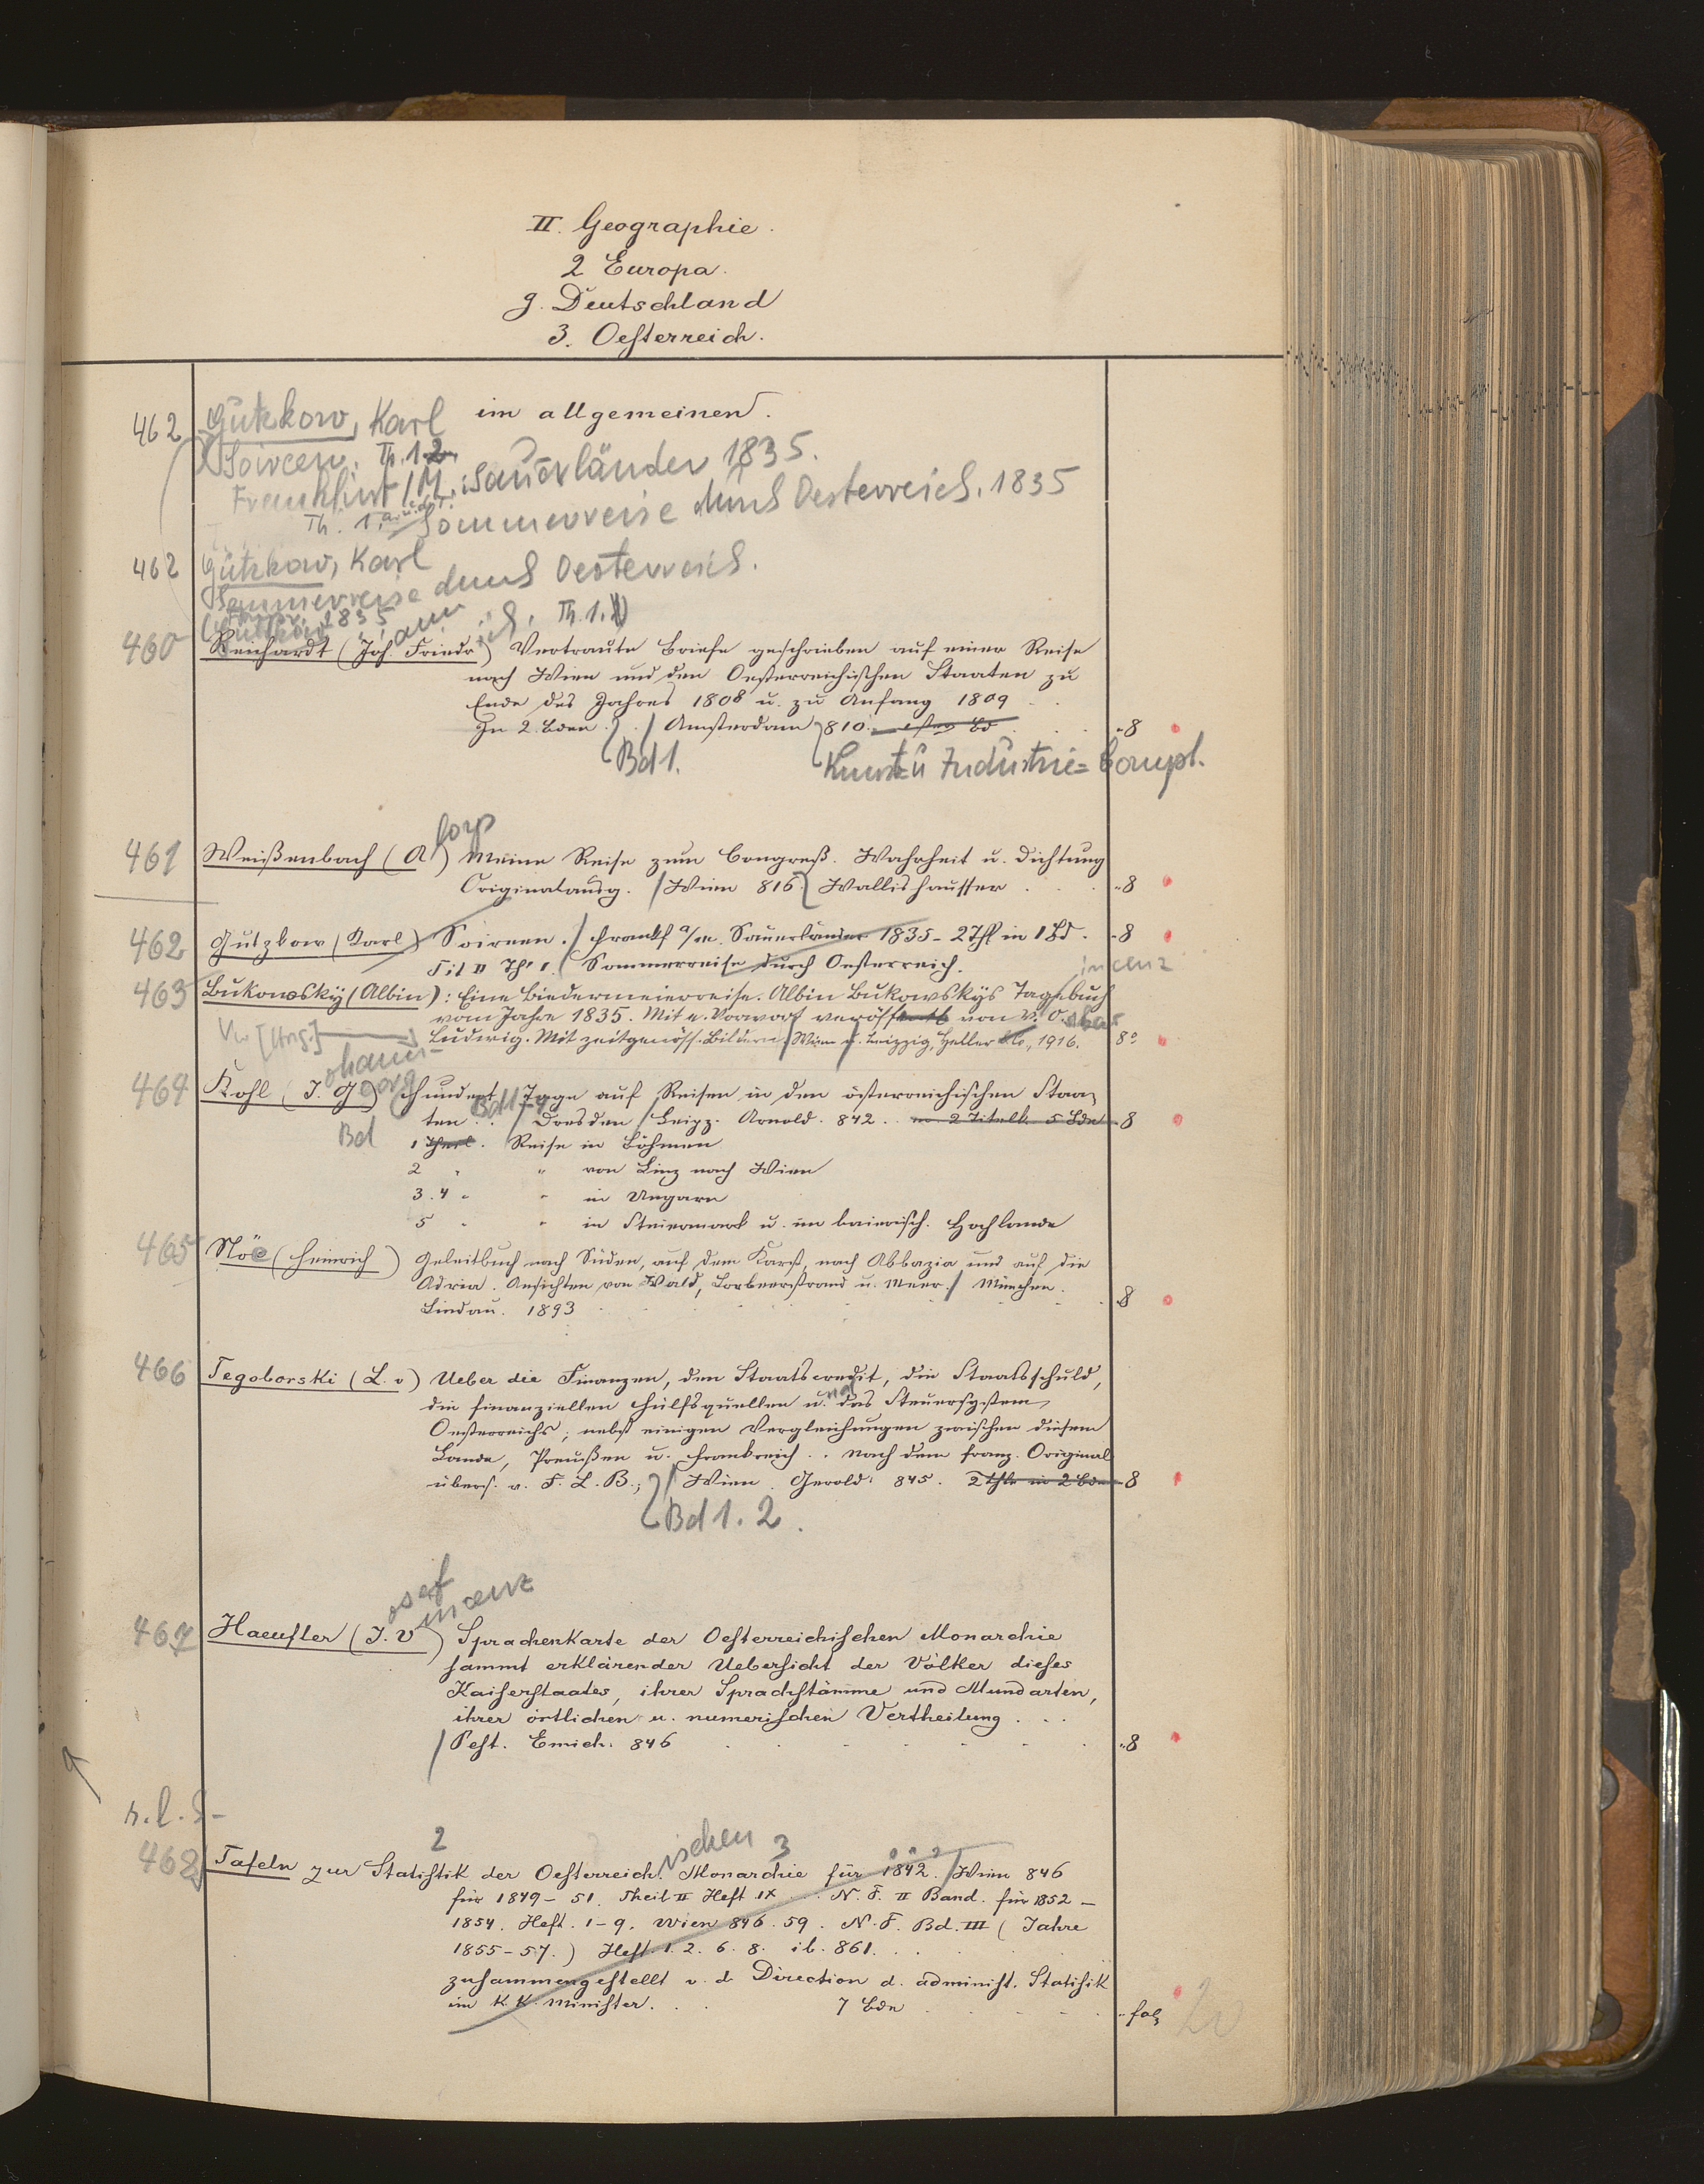 II. Geographie.
2 Europa.
g. Deutschland
3. Oesterreich.
im allgemeinen.
462 Gutzkow, Karl
Soireen. Th. 1.2.
Frankfurt / M.: Sauerländer 1835.
Th. 1, Sommerreise durch Oesterreich. 1835
462 Gutzkow, Karl
Sommerreise durch Oesterreich.
1835
Th. 1.
460 Reichardt (Joh. Friedr.) Vertraute Briefe geschrieben auf einer Reise
nach Wien und den Oesterreichischen Staaten zu
Ende des Jahres 1808 u. zu Anfang 1809
In 2 Bden. / Amsterdam 810. erster Bd 8
Bd 1. Kunst= u Industrie= Compt.
461 Weißenbach (A) Meine Reise zum Congreß. Wahrheit u. Dichtung
Originalausg. / Wien 816. Wallishausser 8
462 Gutzkow (Karl) Soireen. / Frankf a/m. Sauerländer 1835 - 2 Thl in 1 Bd. 8
Tit II Thl 1. Sommerreise durch Oesterreich.
incenz
463 Bukowsky (Albin): Eine Biedermeierreise. Albin Bukowskys Tagebuch
vom Jahre 1835. Mit e. Vorwort veröffentl von V. O.
[Hrsg.] Ludwig. Mit zeitgenöss. Bildern / Wien u. Leipzig, Heller & Co, 1916. 8°
ohann
eorg
464 Kohl (J. G) Hundert Tage auf Reisen in den österreichischen Staa=
ten. Bd 1-4 / Dresden / Leipz. Arnold. 842. m 2 Titelk. 5 Bde 8
Bd 1 Theil. Reise in Böhmen
2 " " von Linz nach Wien
3. 4 " " in Ungarn
5 " " in Steiermark u. im baierisch. Hochlande
465 Noë (Heinrich) Geleitbuch nach Süden, auf dem Karst, nach Abbazia und auf die
Adria. Ansichten von Wald, Lorbeerstrand u. Meer. / München.
Lindau. 1893 8
466 Tegoborski (L. v) Ueber die Finanzen, den Staatscredit, die Staatsschuld,
die finanziellen Hülfsquellen u. das Steuersystem
Oesterreichs; nebst einigen Vergleichungen zwischen diesem
Lande, Preußen u. Frankreich.. Nach dem franz. Original
übers. v. F. L. B.; / Wien. Gerold: 845. 2 Thle in 2 Bde 8
Bd 1. 2.
osef
incenz
467 Haeufler (J. V) Sprachenkarte der Oesterreichischen Monarchie
sammt erklärender Uebersicht der Völker dieses
Kaiserstaates, ihrer Sprachstämme und Mundarten,
ihrer örtlichen u. numerischen Vertheilung . . .
/ Pest. Emich. 846 8
2 ischen 3
468 Tafeln zur Statistik der Oesterreich. Monarchie für 1842. / Wien 846
für 1849 - 51. Theil II Heft IX . . N. F. II Band. für 1852 -
1854. Heft. 1-9. Wien 846. 59. N. F. Bd. III (Jahre
1855-57.) Heft. 1. 2. 6. 8. ib. 861. . .
zusammengestellt v. d. Direction d. administ. Statistik
im K. K. Minister. . . 7 Bde fol